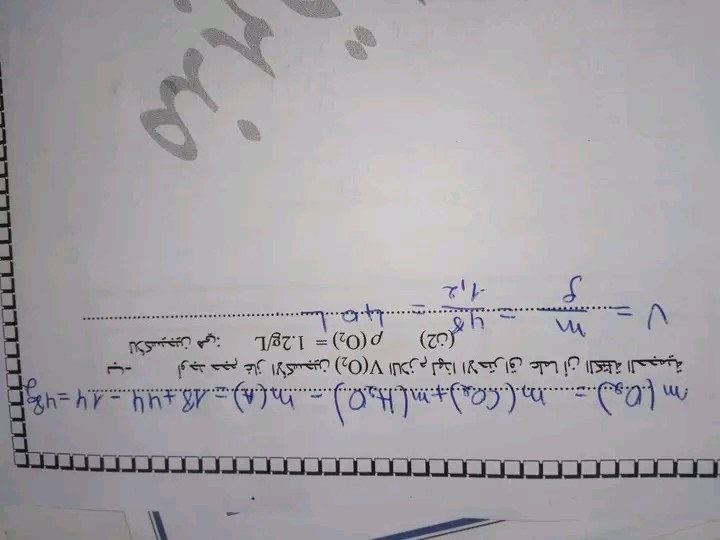 m(O₂) = m(CO₂) + m(H₂O) - m(A) = 18 + 44 - 14 = 48g
ب- أوجد حجم غاز الأكسجين V(O₂) اللازم لهذا الاحتراق علما أن الكتلة الحجمية
للأكسجين هي: ρ(O₂) = 1.2g/L (2ن)
V = m/ρ = 48/1,2 = 40 L